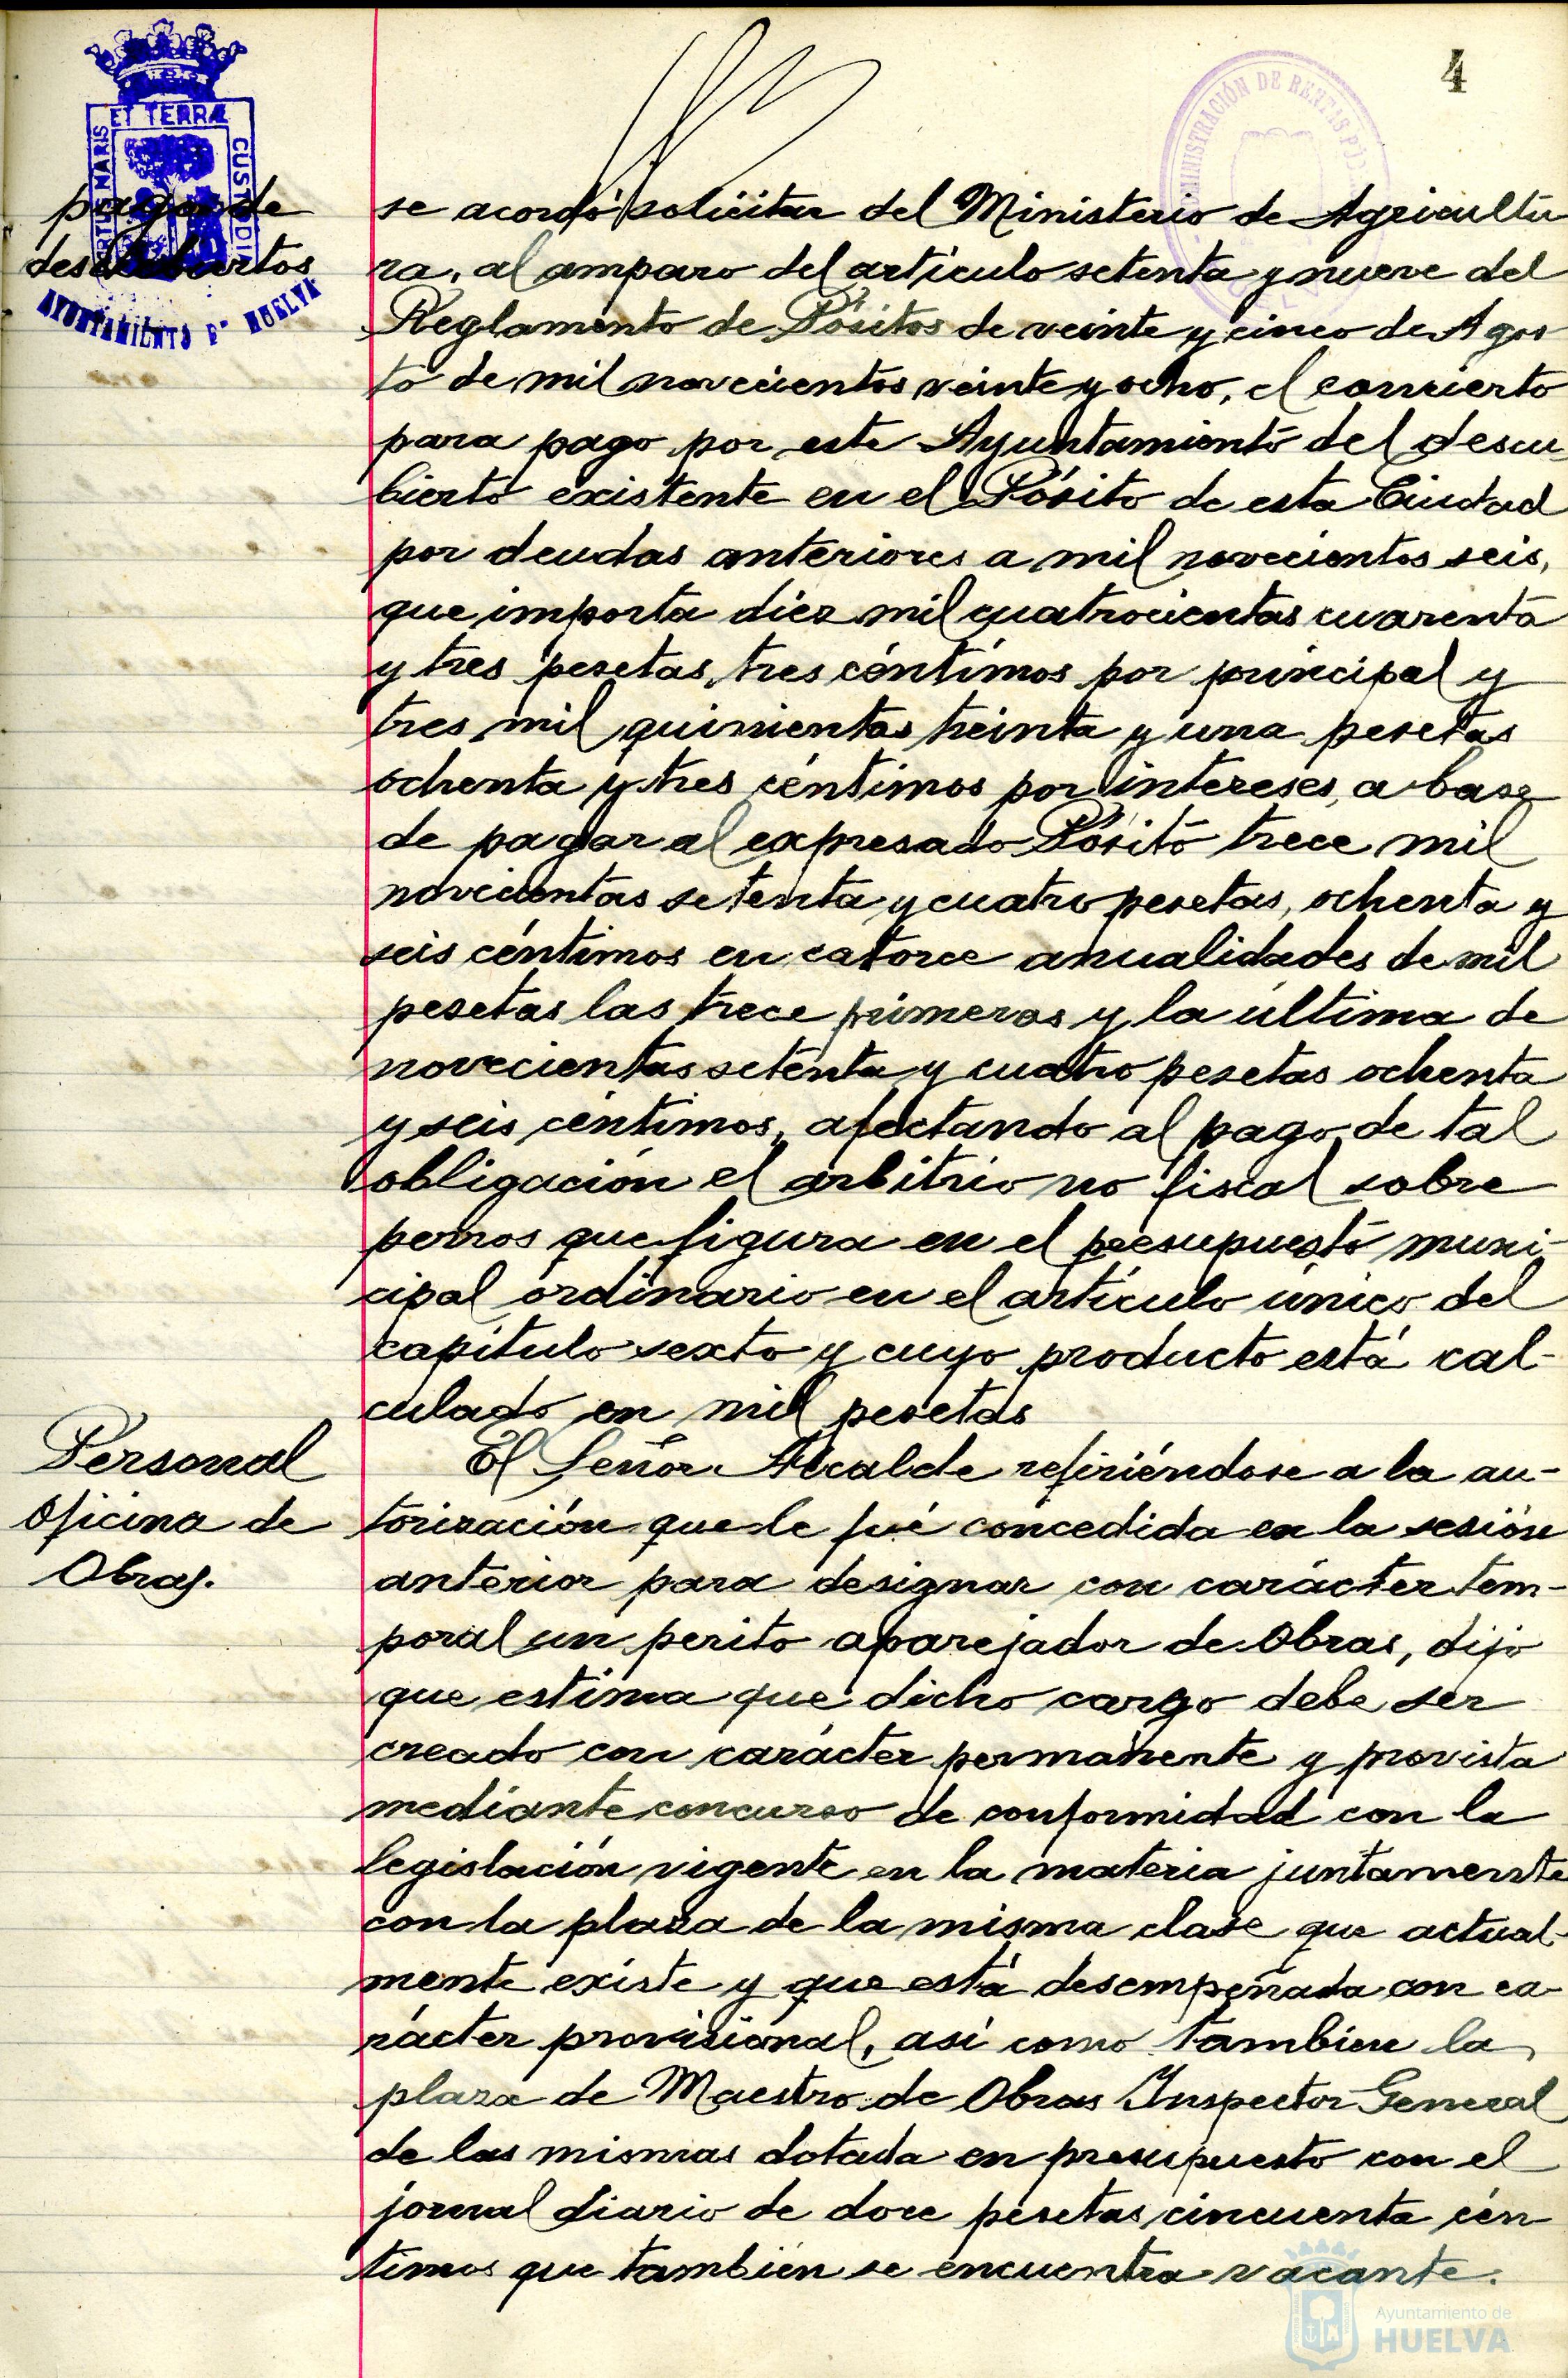 4
ET TERRÆ
PORTUS MARIS
CUSTODIA
AYUNTAMIENTO Dᴱ HUELVA
ADMINISTRACIÓN DE RENTAS PÚB
pago de
descubiertos
se acordó solicitar del Ministerio de Agricultu
ra, al amparo del artículo setenta y nueve del
Reglamento de Pósitos de veinte y cinco de Agos
to de mil novecientos veinte y ocho, el concierto
para pago por este Ayuntamiento del descu-
bierto existente en el Pósito de esta Ciudad
por deudas anteriores a mil novecientos seis,
que importa diez mil cuatrocientas cuarenta
y tres pesetas, tres céntimos por principal y
tres mil quinientas treinta y una pesetas
ochenta y tres céntimos por intereses, a base
de pagar al expresado Pósito trece mil
novecientas setenta y cuatro pesetas, ochenta y
seis céntimos en catorce anualidades de mil
pesetas las trece primeras y la última de
novecientas setenta y cuatro pesetas ochenta
y seis céntimos, afectando al pago de tal
obligación el arbitrio no fiscal sobre
perros que figura en el presupuesto muni-
cipal ordinario en el artículo único del
capítulo sexto y cuyo producto está cal-
culado en mil pesetas
Personal
Oficina de
Obras.
El Señor Alcalde refiriéndose a la au-
torización que le fué concedida en la sesión
anterior para designar con carácter tem-
poral un perito aparejador de Obras, dijo
que estima que dicho cargo debe ser
creado con carácter permanente y provista
mediante concurso de conformidad con la
legislación vigente en la materia juntamente
con la plaza de la misma clase que actual-
mente existe y que está desempeñada con ca-
rácter provisional, así como tambien la
plaza de Maestro de Obras Inspector General
de las mismas dotada en presupuesto con el
jornal diario de doce pesetas cincuenta cén
timos que también se encuentra vacante.
Ayuntamiento de
HUELVA